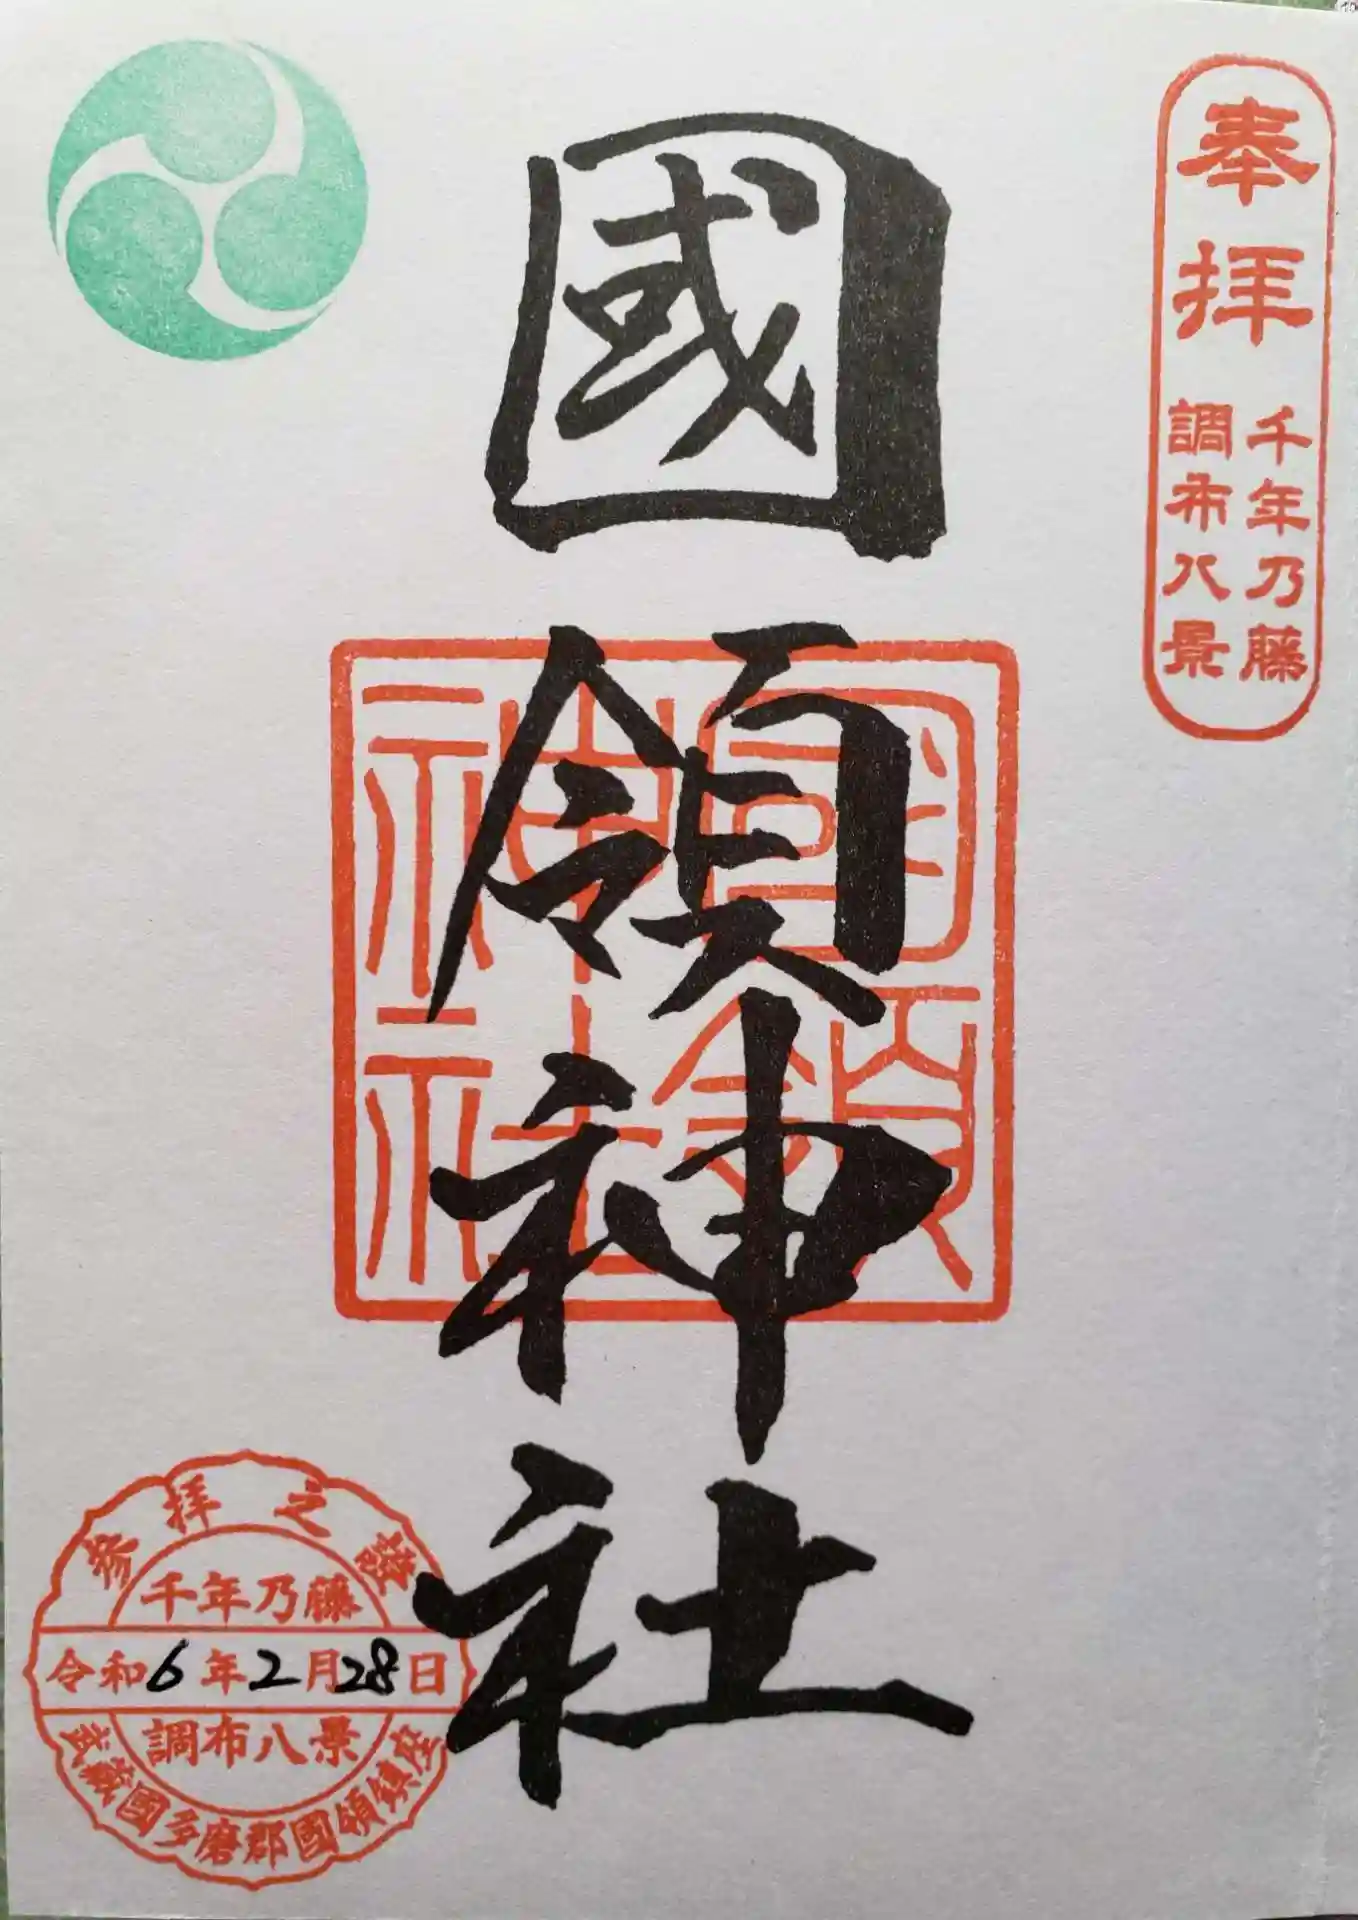 奉拝
千年乃藤
調布八景
國領神社
國領
神社
参拝之證
千年乃藤
令和6年2月28日
調布八景
武蔵國多磨郡國領鎮座